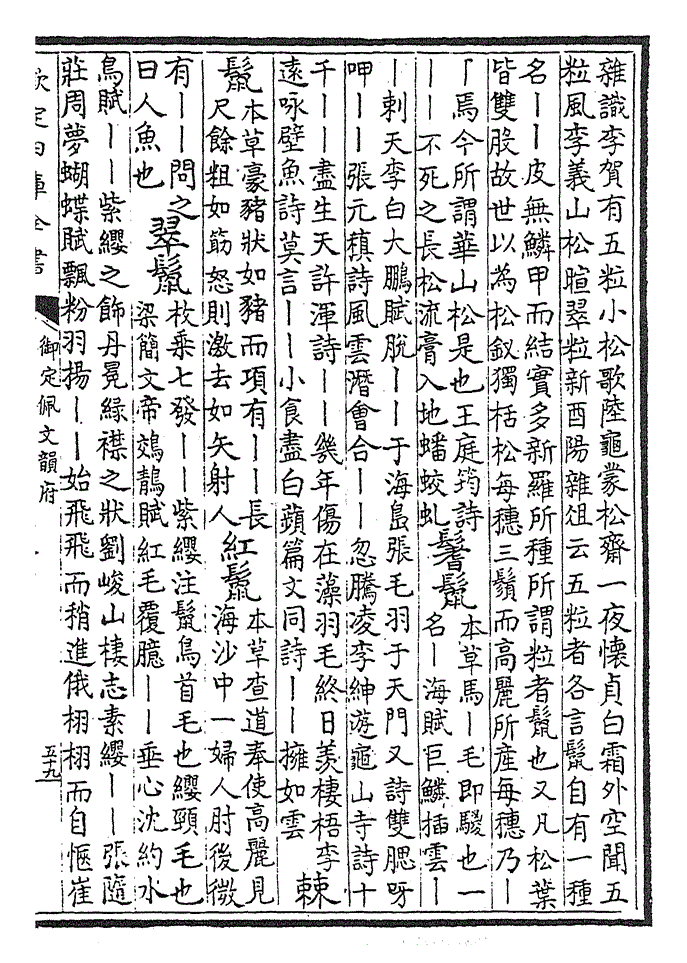 雜識李賀有五粒小松歌陸龜蒙松齋一夜懷貞白霜外空聞五
粒風李義山松暄翠粒新酉陽雜俎云五粒者各言鬣自有一種
名丨丨皮無鱗甲而結實多新羅所種所謂粒者鬣也又凡松葉
皆雙股故世以為松釵獨栝松每穗三鬚而高麗所産每穗乃丨
丨焉今所謂華山松是也王庭筠詩
丨丨不死之長松流膏入地蟠蛟虬
鬐鬣
本草馬丨毛即騣也一
名丨海賦巨鱗插雲丨
丨刺天李白大鵬賦脫丨丨于海島張毛羽于天門又詩雙腮呀
呷丨丨張元稹詩風雲潛會合丨丨忽騰凌李紳游龜山寺詩十
千丨丨盡生天許渾詩丨丨幾年傷在藻羽毛終日羨棲梧李
遠咏壁魚詩莫言丨丨小食盡白蘋篇文同詩丨丨擁如雲
棘
鬣
本草豪豬狀如豬而項有丨丨長
尺餘粗如筋怒則激去如矢射人
紅鬣
本草查道奉使高麗見
海沙中一婦人肘後微
有丨丨問之
曰人魚也
翠鬣
枚乘七發丨丨紫纓注鬣鳥首毛也纓頸毛也
梁簡文帝鵁鶄賦紅毛覆臆丨丨垂心沈約水
鳥賦丨丨紫纓之飾丹冕緑襟之狀劉峻山棲志素纓丨丨張隨
莊周夢蝴蝶賦飄粉羽揚丨丨始飛飛而稍進俄栩栩而自愜崔
欽定四庫全書
御定佩文韻府
五十九